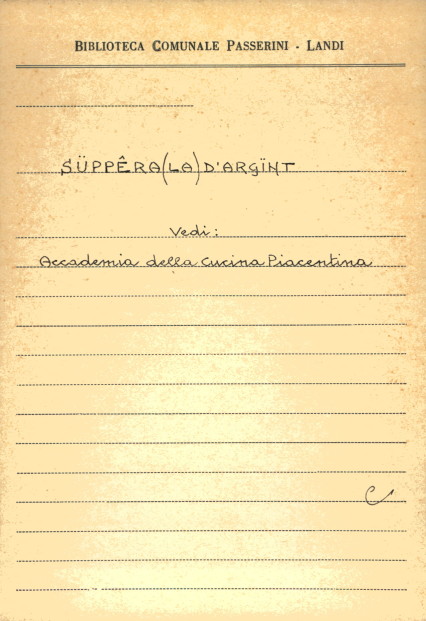 BIBLIOTECA COMUNALE PASSERINI - LANDI
SÜPPÊRA(LA)D'ARGÏNT
Vedi:
Accademia della Cucina Piacentina
C